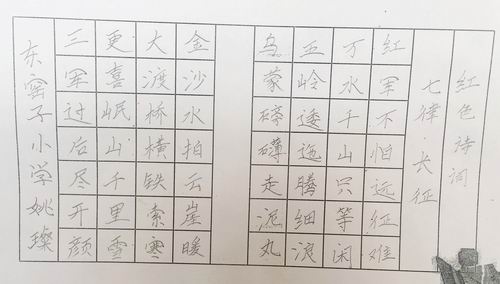 红色诗词
七律 长征
红军不怕远征难
万水千山只等闲
五岭逶迤腾细浪
乌蒙磅礴走泥丸
金沙水拍云崖暖
大渡桥横铁索寒
更喜岷山千里雪
三军过后尽开颜
东窑子小学姚璨